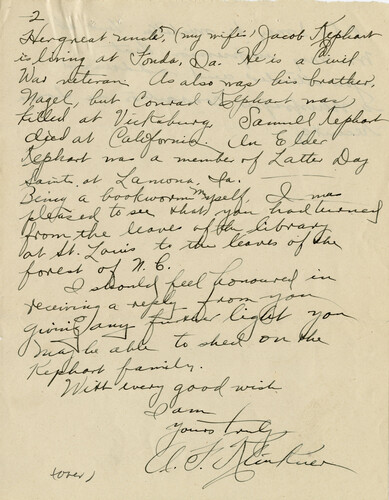 2
Her great uncle, (my wifes) Jacob Kephart
is living at Fonda, Ia. He is a Civil
War veteran. As also was his brother,
Nagel, but Conrad Kephart was
killed at Vicksburg. Samuel Kephart
died at California. An Elder
Kephart was a member of Latter Day
Saints at Lamona, Ia.
Being a bookworm myself. I was
pleased to see that you had turned
from the leaves of the library
at St. Louis to the leaves of the
forest of N. C.
I should feel honoured in
receiving a reply from you
giving any further light you
may be able to shed on the
Kephart family.
With every good wish
I am
Yours truly,
Klinkner
(over)